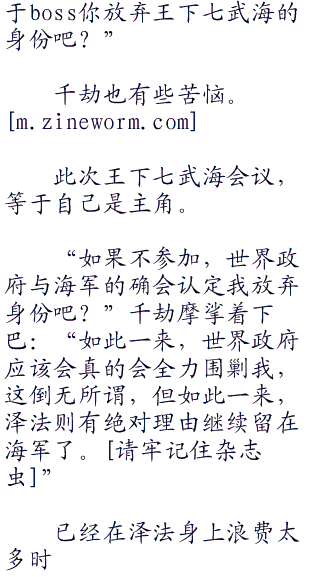 于boss你放弃王下七武海的
身份吧？”
千劫也有些苦恼。
[m.zineworm.com]
此次王下七武海会议，
等于自己是主角。
“如果不参加，世界政
府与海军的确会认定我放弃
身份吧？”千劫摩挲着下
巴：“如此一来，世界政府
应该会真的会全力围剿我，
这倒无所谓，但如此一来，
泽法则有绝对理由继续留在
海军了。[请牢记住杂志
虫]”
已经在泽法身上浪费太
多时